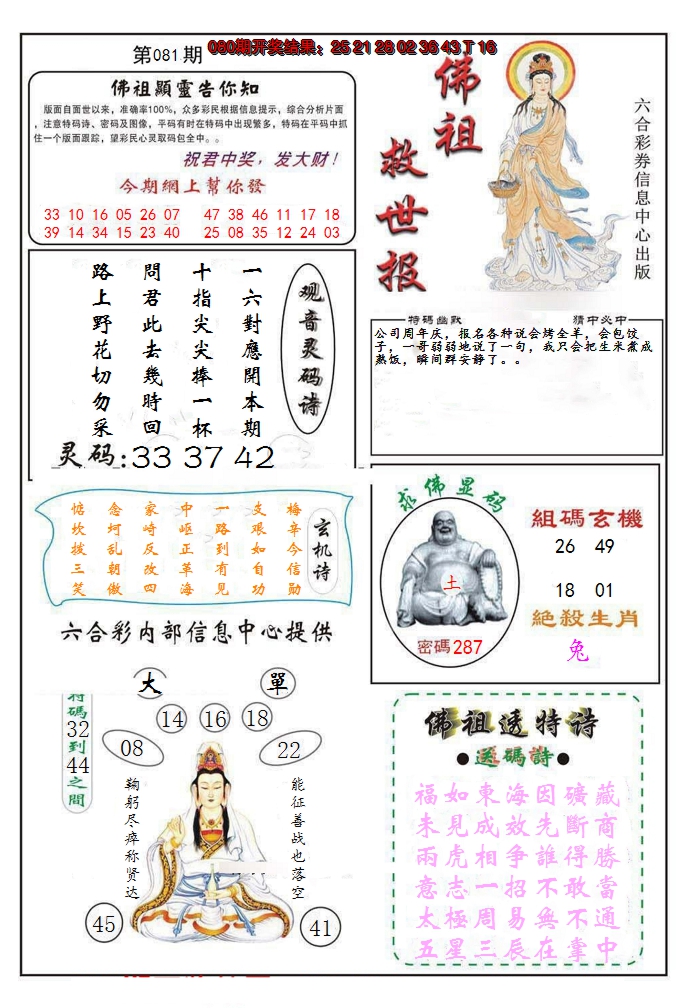 第081期
080期开奖结果：25 21 28 02 36 43 T 16
佛祖顯靈告你知
版面自面世以来，准确率100%，众多彩民根据信息提示，综合分析片面
，注意特码诗、密码及图像，平码有时在特码中出现繁多，特码在平码中抓
住一个版面跟踪，望彩民心灵取码包全中。。
祝君中奖，发大财！
今期網上幫你發
33 10 16 05 26 07 47 38 46 11 17 18
39 14 34 15 23 40 25 08 35 12 24 03
佛祖
救世报
六合彩券信息中心出版
观音灵码诗
一六對應開本期
十指尖尖捧一杯
問君此去幾時回
路上野花切勿采
灵码:33 37 42
特碼幽默
猜中必中
公司周年庆，报名各种说会烤全羊，会包饺
子，一哥弱弱地说了一句，我只会把生米煮成
熟饭，瞬间群安静了。。
玄机诗
梅辛今信勋
支艰如自功
一路到有見
中岖正革海
家崎反改四
念坷乱朝傲
惦坎拨三笑
六合彩内部信息中心提供
求佛显码
土
密碼287
組碼玄機
26 49
18 01
絕殺生肖
兔
大
單
特碼32到44之間
14
16
18
08
22
鞠躬尽瘁称贤达
能征善战也落空
45
41
佛祖透特诗
送碼詩
福如東海因礦藏
未見成效先斷商
兩虎相争誰得勝
意志一招不敢當
太極周易無不通
五星三辰在掌中